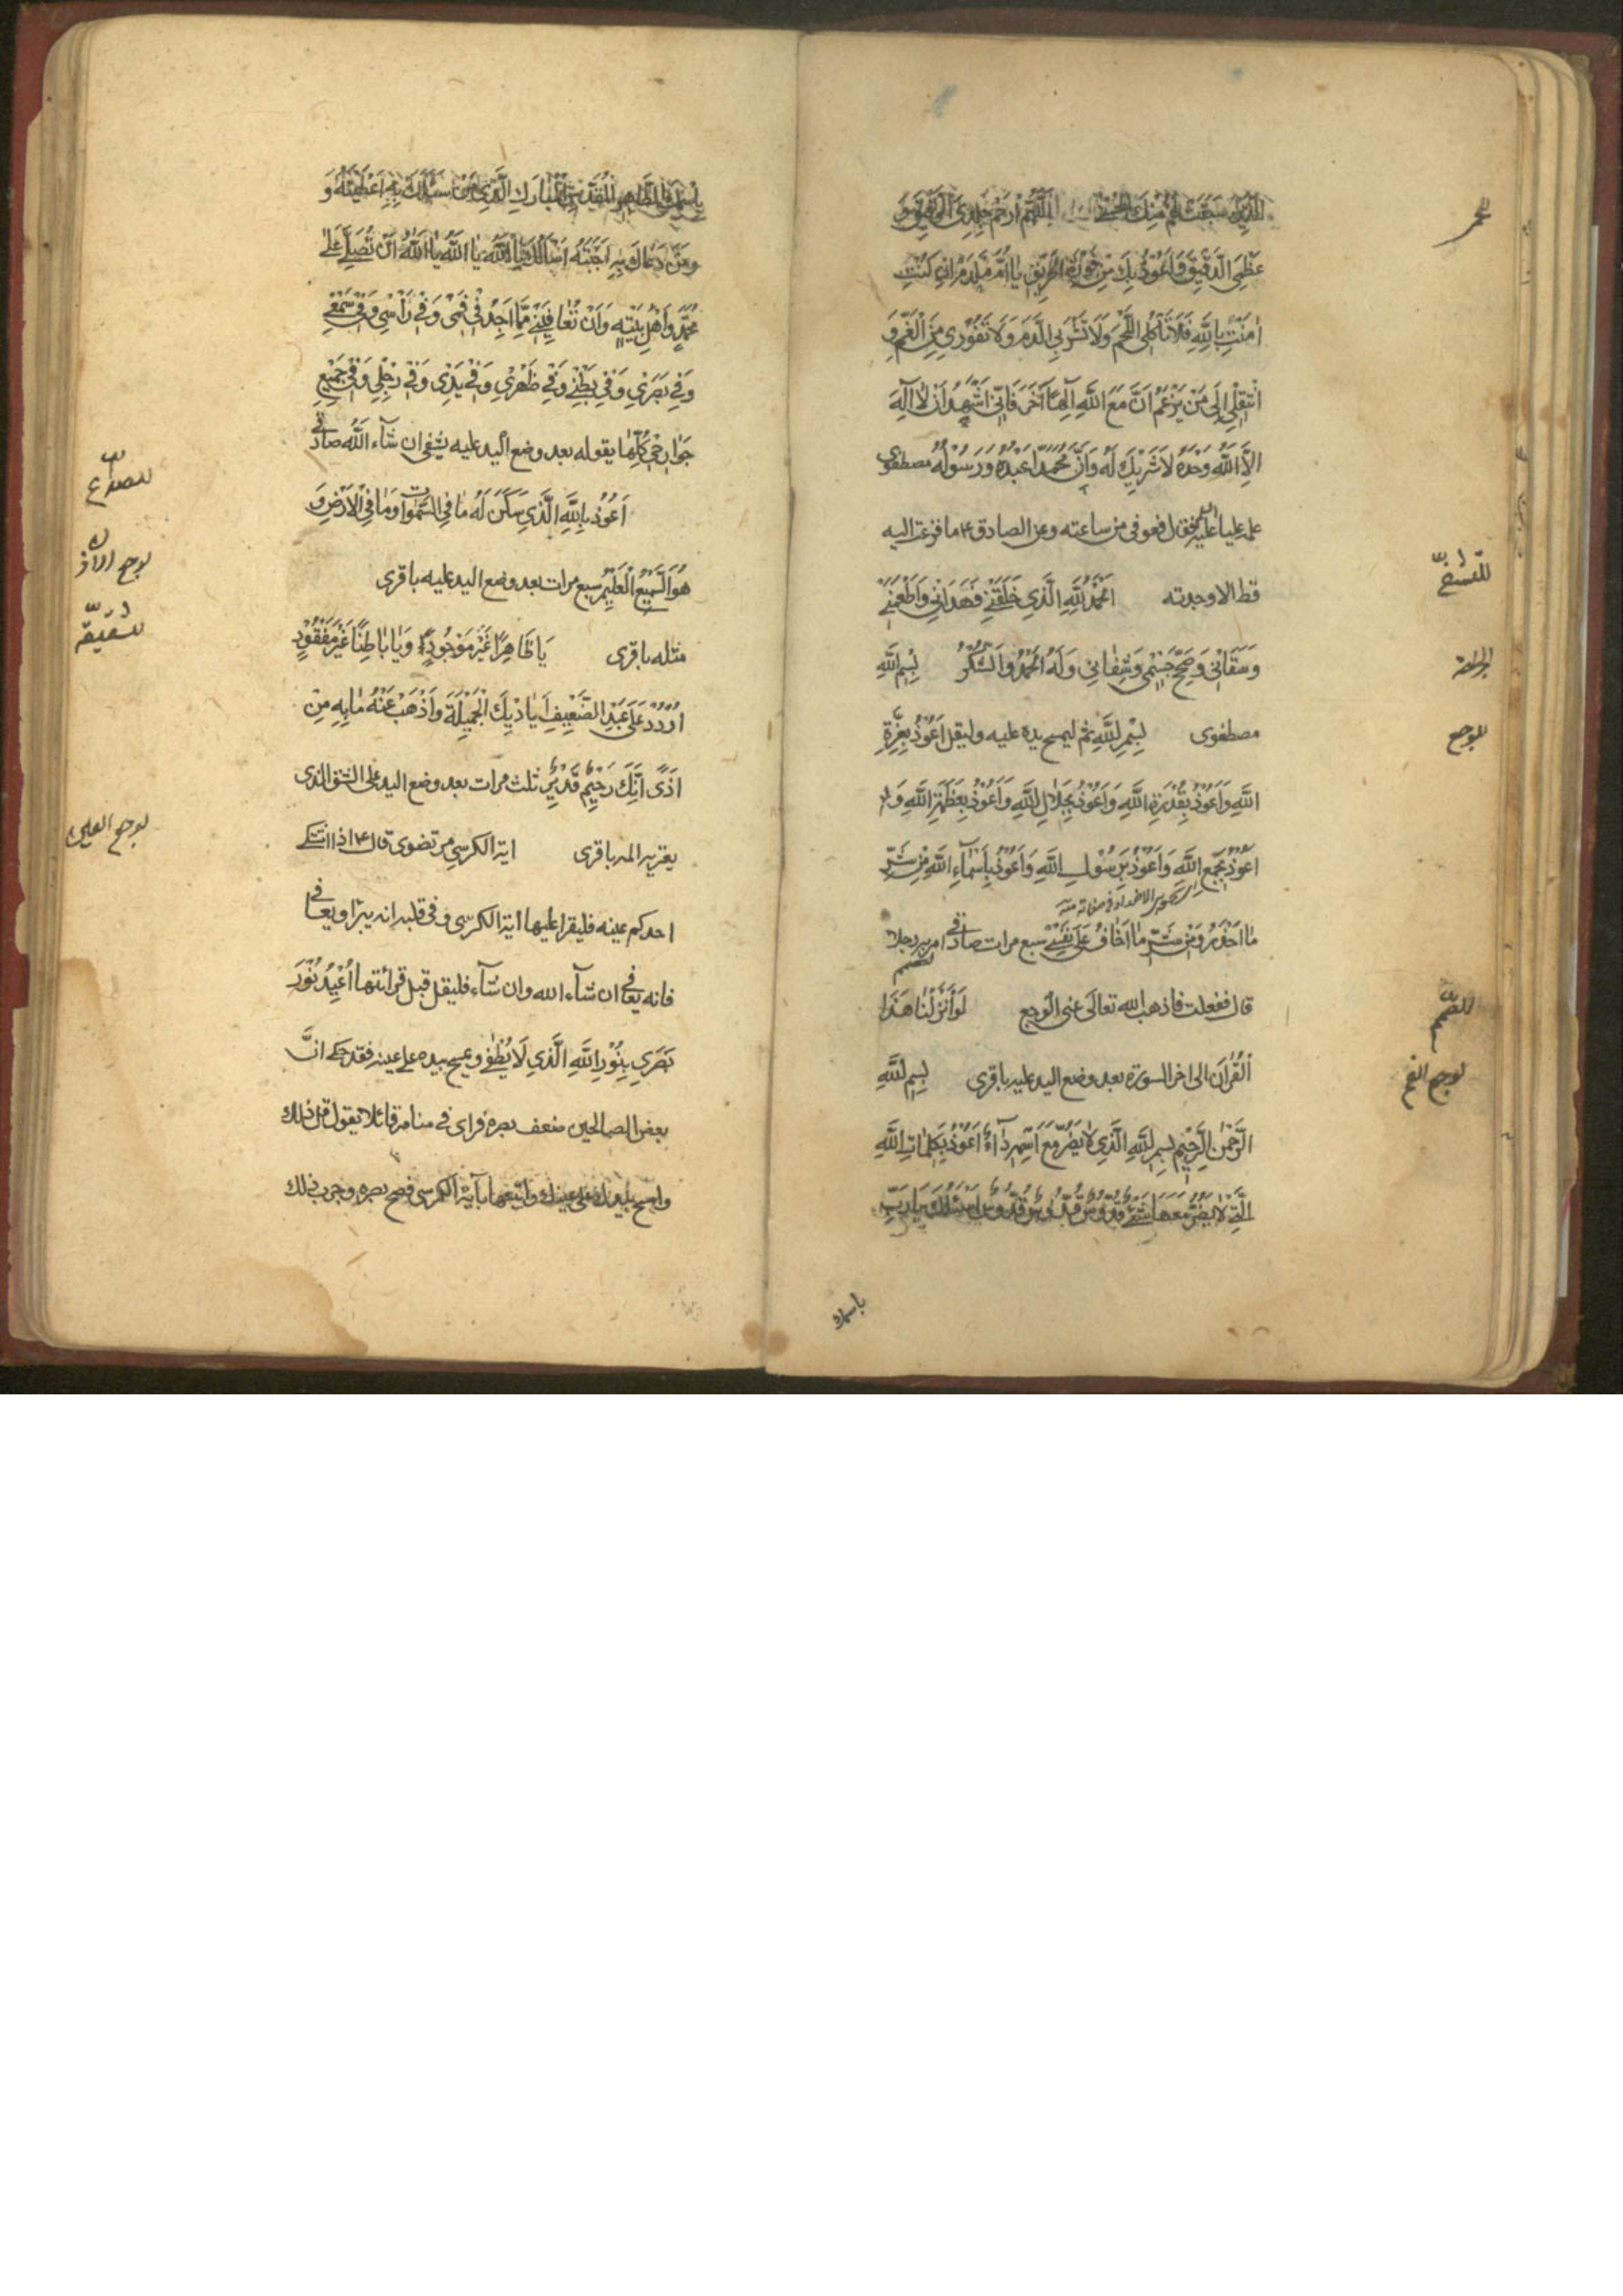 الَّذِينَ سَبَقَتْ لَهُمْ مِنَّا الْحُسْنٰى اَللّٰهُمَّ ارْحَمْ جِلْدِيَ الرَّقِيقَ وَ
للحمى
عَظْمِيَ الدَّقِيقَ وَاَعُوذُ بِكَ مِنْ فَوْرَةِ الْحَرِيقِ يَا اُمَّ مِلْدَمٍ اِنْ كُنْتِ
اٰمَنْتِ بِاللّٰهِ فَلَا تَأْكُلِي اللَّحْمَ وَلَا تَشْرَبِي الدَّمَ وَلَا تَفُورِي مِنَ الْفَمِ وَ
انْتَقِلِي اِلٰى مَنْ يَزْعُمُ اَنَّ مَعَ اللّٰهِ اِلٰهًا آخَرَ فَاِنِّي اَشْهَدُ اَنْ لَا اِلٰهَ
اِلَّا اللّٰهُ وَحْدَهُ لَا شَرِيكَ لَهُ وَاَنَّ مُحَمَّدًا عَبْدُهُ وَرَسُولُهُ مصطفوى
علمه عليا عليه السلام فقال فعوفى من ساعته وعن الصادق ع ما فزعت اليه
قط الا وجدته اَلْحَمْدُ لِلّٰهِ الَّذِي خَلَقَنِي فَهَدَانِي وَاَطْعَمَنِي
وَسَقَانِي وَصَحَّحَ جِسْمِي وَشَفَانِي وَلَهُ الْحَمْدُ وَالشُّكْرُ بِسْمِ اللّٰهِ
للجراحة
مصطفوى بِسْمِ اللّٰهِ ثم ليمسح يده عليه وليقل اَعُوذُ بِعِزَّةِ
للوجع
اللّٰهِ وَاَعُوذُ بِقُدْرَةِ اللّٰهِ وَاَعُوذُ بِجَلَالِ اللّٰهِ وَاَعُوذُ بِعَظَمَةِ اللّٰهِ وَ
اَعُوذُ بِجَمْعِ اللّٰهِ وَاَعُوذُ بِرَسُولِ اللّٰهِ وَاَعُوذُ بِاَسْمَاءِ اللّٰهِ مِنْ شَرِّ
مَا اَحْذَرُ وَمِنْ شَرِّ مَا اَخَافُ عَلٰى نَفْسِي سبع مرات صادقى امر به رجلا
قال ففعلت فاذهب الله تعالى عنى الوجع لَوْ اَنْزَلْنَا هٰذَا
للصمم
اَلْقُرْآنَ الى اخر السورة بعد وضع اليد عليه باقرى بِسْمِ اللّٰهِ
لوجع الفم
الرَّحْمٰنِ الرَّحِيمِ بِسْمِ اللّٰهِ الَّذِي لَا يَضُرُّ مَعَ اسْمِهِ دَاءٌ اَعُوذُ بِكَلِمَاتِ اللّٰهِ
الَّتِي لَا يَضُرُّ مَعَهَا شَيْءٌ قُدُّوسٌ قُدُّوسٌ قُدُّوسٌ اَسْئَلُكَ يَا رَبِّ
باسمك
بِاسْمِكَ الطَّاهِرِ الْمُقَدَّسِ الْمُبَارَكِ الَّذِي مَنْ سَئَلَكَ بِهِ اَعْطَيْتَهُ وَ
وَمَنْ دَعَاكَ بِهِ اَجَبْتَهُ اَسْأَلُكَ يَا اَللّٰهُ يَا اَللّٰهُ يَا اَللّٰهُ اَنْ تُصَلِّيَ عَلٰى
مُحَمَّدٍ وَاَهْلِ بَيْتِهِ وَاَنْ تُعَافِيَنِي مِمَّا اَجِدُ فِي فَمِي وَفِي رَأْسِي وَفِي سَمْعِي
وَفِي بَصَرِي وَفِي بَطْنِي وَفِي ظَهْرِي وَفِي يَدِي وَفِي رِجْلِي وَفِي جَمِيعِ
جَوَارِحِي كُلِّهَا يقوله بعد وضع اليد عليه يشفى ان شاء الله صادقى
للصداع
اَعُوذُ بِاللّٰهِ الَّذِي سَكَنَ لَهُ مَا فِي السَّمٰوَاتِ وَمَا فِي الْاَرْضِ وَ
لوجع الاذن
هُوَ السَّمِيعُ الْعَلِيمُ سبع مرات بعد وضع اليد عليه باقرى
للشقيقة
مثله باقرى يَا ظَاهِرًا غَيْرَ مَوْجُودٍ وَيَا بَاطِنًا غَيْرَ مَفْقُودٍ
اُرْدُدْ عَلٰى عَبْدِكَ الضَّعِيفِ اَيَادِيَكَ الْجَمِيلَةَ وَاَذْهِبْ عَنْهُ مَا بِهِ مِنْ
اَذًى اِنَّكَ رَحِيمٌ قَدِيرٌ ثلث مرات بعد وضع اليد على الشق الذى
يعتريه الم باقرى اية الكرسى مرتضوى قال ع اذا اشتكى
لوجع العين
احدكم عينه فليقرا عليها آية الكرسى وفى قلبه انه يبرا ويعافى
فانه يعافى ان شاء الله وان شاء فليقل قبل قرائتها اُعِيذُ نُورَ
بَصَرِي بِنُورِ اللّٰهِ الَّذِي لَا يُطْفٰى ويمسح بيده على عينيه فقد حكى ان
بعض الصالحين ضعف بصره فراى فى منامه قائلا يقول قل ذلك
وامسح بيدك على عينيك واتبعها بآية الكرسى فصح بصره وجرب ذلك